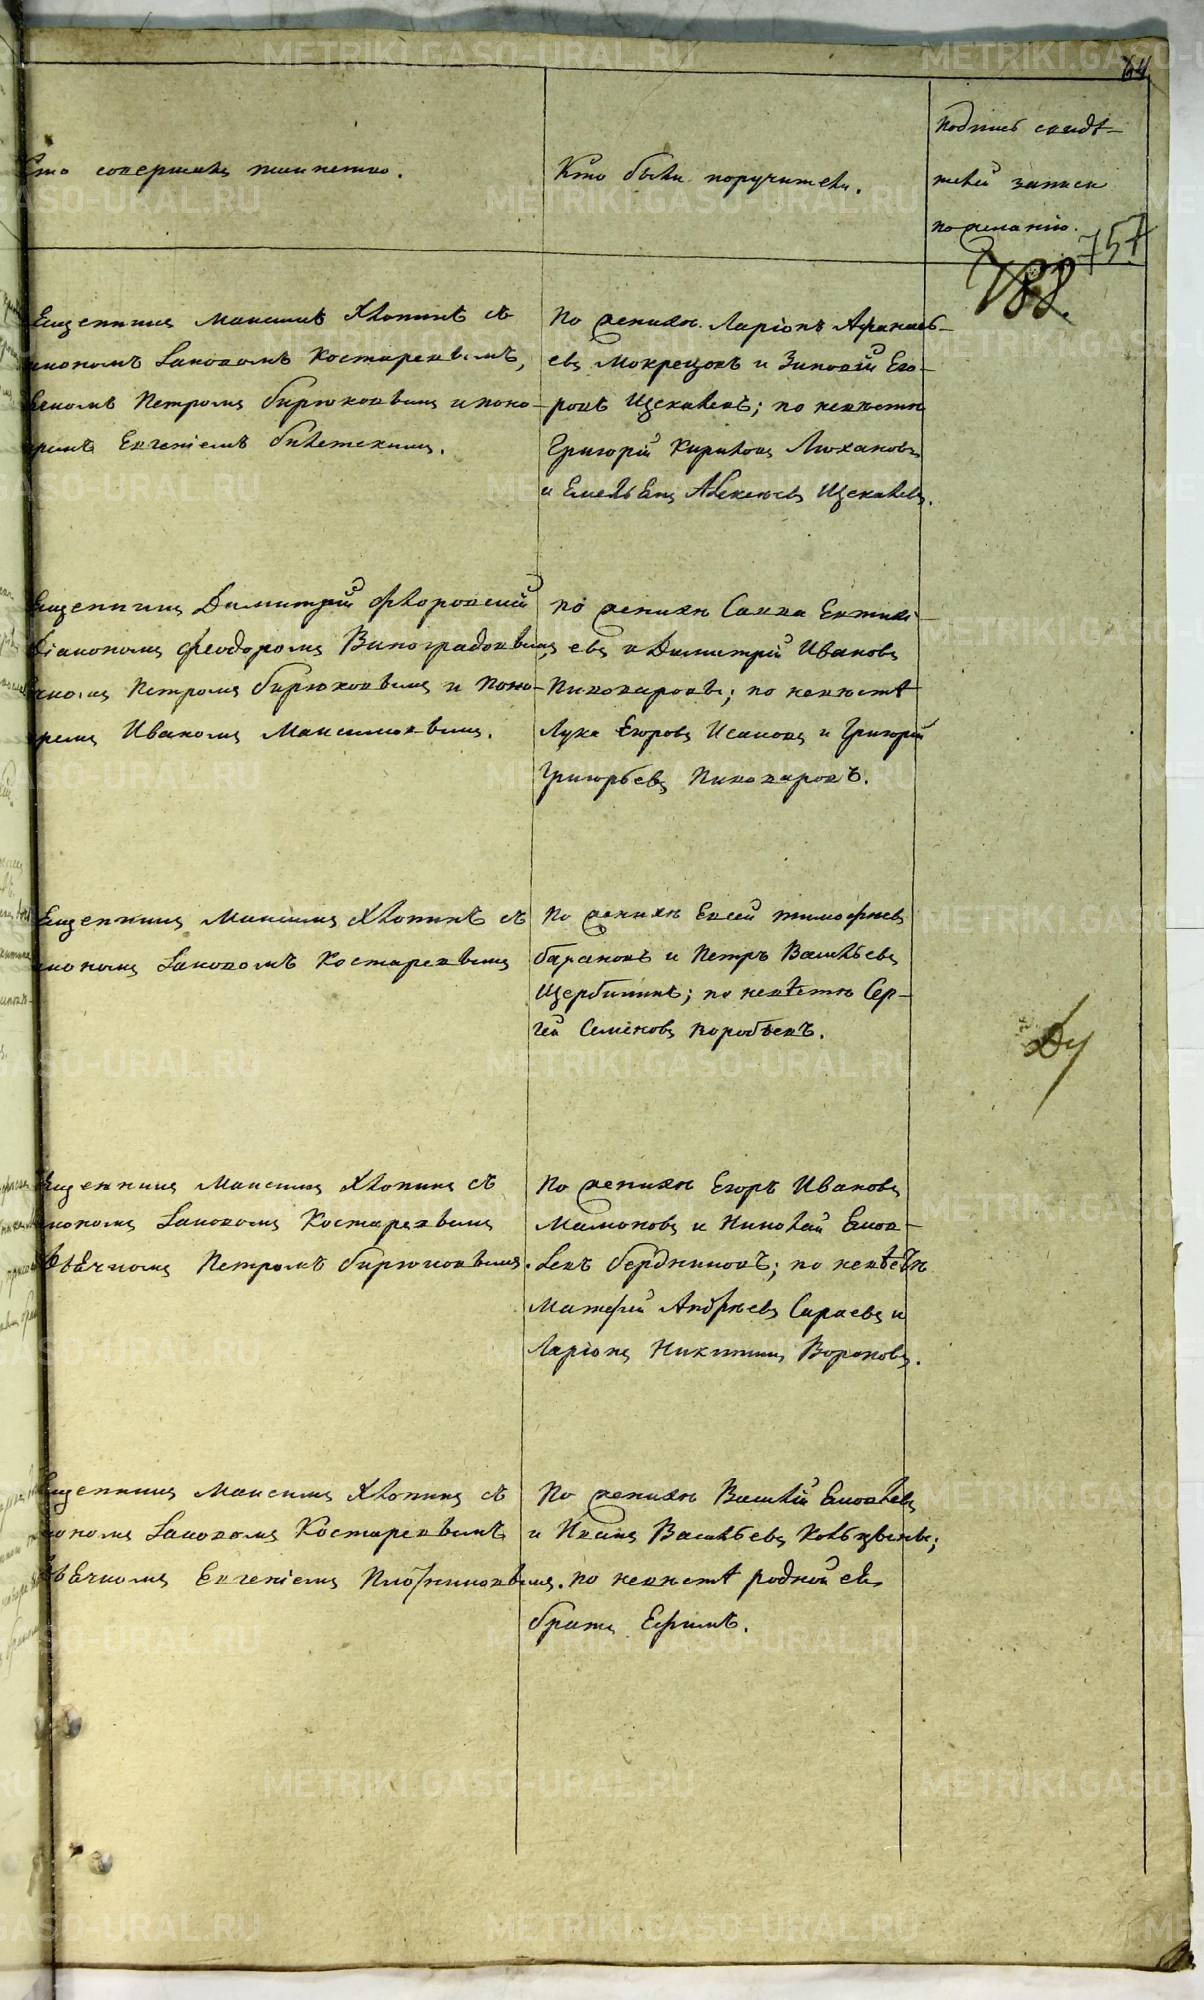 64
Кто совершалъ таинство.
Кто были поручители.
Подпись свидѣ-
телей записи
по желанію.
757
188.
Священникъ Максимъ Хлопинъ съ
діакономъ Іаковомъ Костаревымъ,
Петромъ Бирюковымъ и поно-
маремъ Евгеніемъ
По женихѣ Ларіонъ Афанась-
евъ Мокрецовъ и Зиновій Его-
ровъ Щекалевъ; по невѣстѣ
Григорій Кириловъ Люхановъ
и Емельянъ Алексѣевъ Щекалевъ.
Священникъ Димитрій Флоровскій
Діакономъ Феодоромъ Виноградовымъ,
Петромъ Бирюковымъ и Поно-
маремъ Иваномъ Максимовымъ.
по женихѣ Савва Евтихі-
евъ и Димитрій Ивановъ
Пивоваровы; по невѣстѣ
Лука Егоровъ Исаковъ и Григорій
Григорьевъ Пивоваровъ.
Священникъ Максимъ Хлопинъ съ
діакономъ Іаковомъ Костаревымъ
По женихѣ Евсей Тимофѣевъ
Барановъ и Петръ Васильевъ
Щербининъ; по невѣстѣ Сер-
гей Семеновъ Коробѣевъ.
Священникъ Максимъ Хлопинъ съ
діакономъ Іаковомъ Костаревымъ
Дьячкомъ Петромъ Бирюковымъ.
По женихѣ Егоръ Ивановъ
Мамоновъ и Николай Яков-
левъ Бердниковъ; по невѣстѣ
Матфей Андрѣевъ Сараевъ и
Ларіонъ Никитинъ Вороновъ.
Священникъ Максимъ Хлопинъ съ
діакономъ Іаковомъ Костаревымъ
Дьячкомъ Евгеніемъ Плотниковымъ.
По женихѣ Василій Яковлевъ
и Иванъ Васильевъ
по невѣстѣ родной ея
братъ Ефимъ.
METRIKI.GASO-URAL.RU